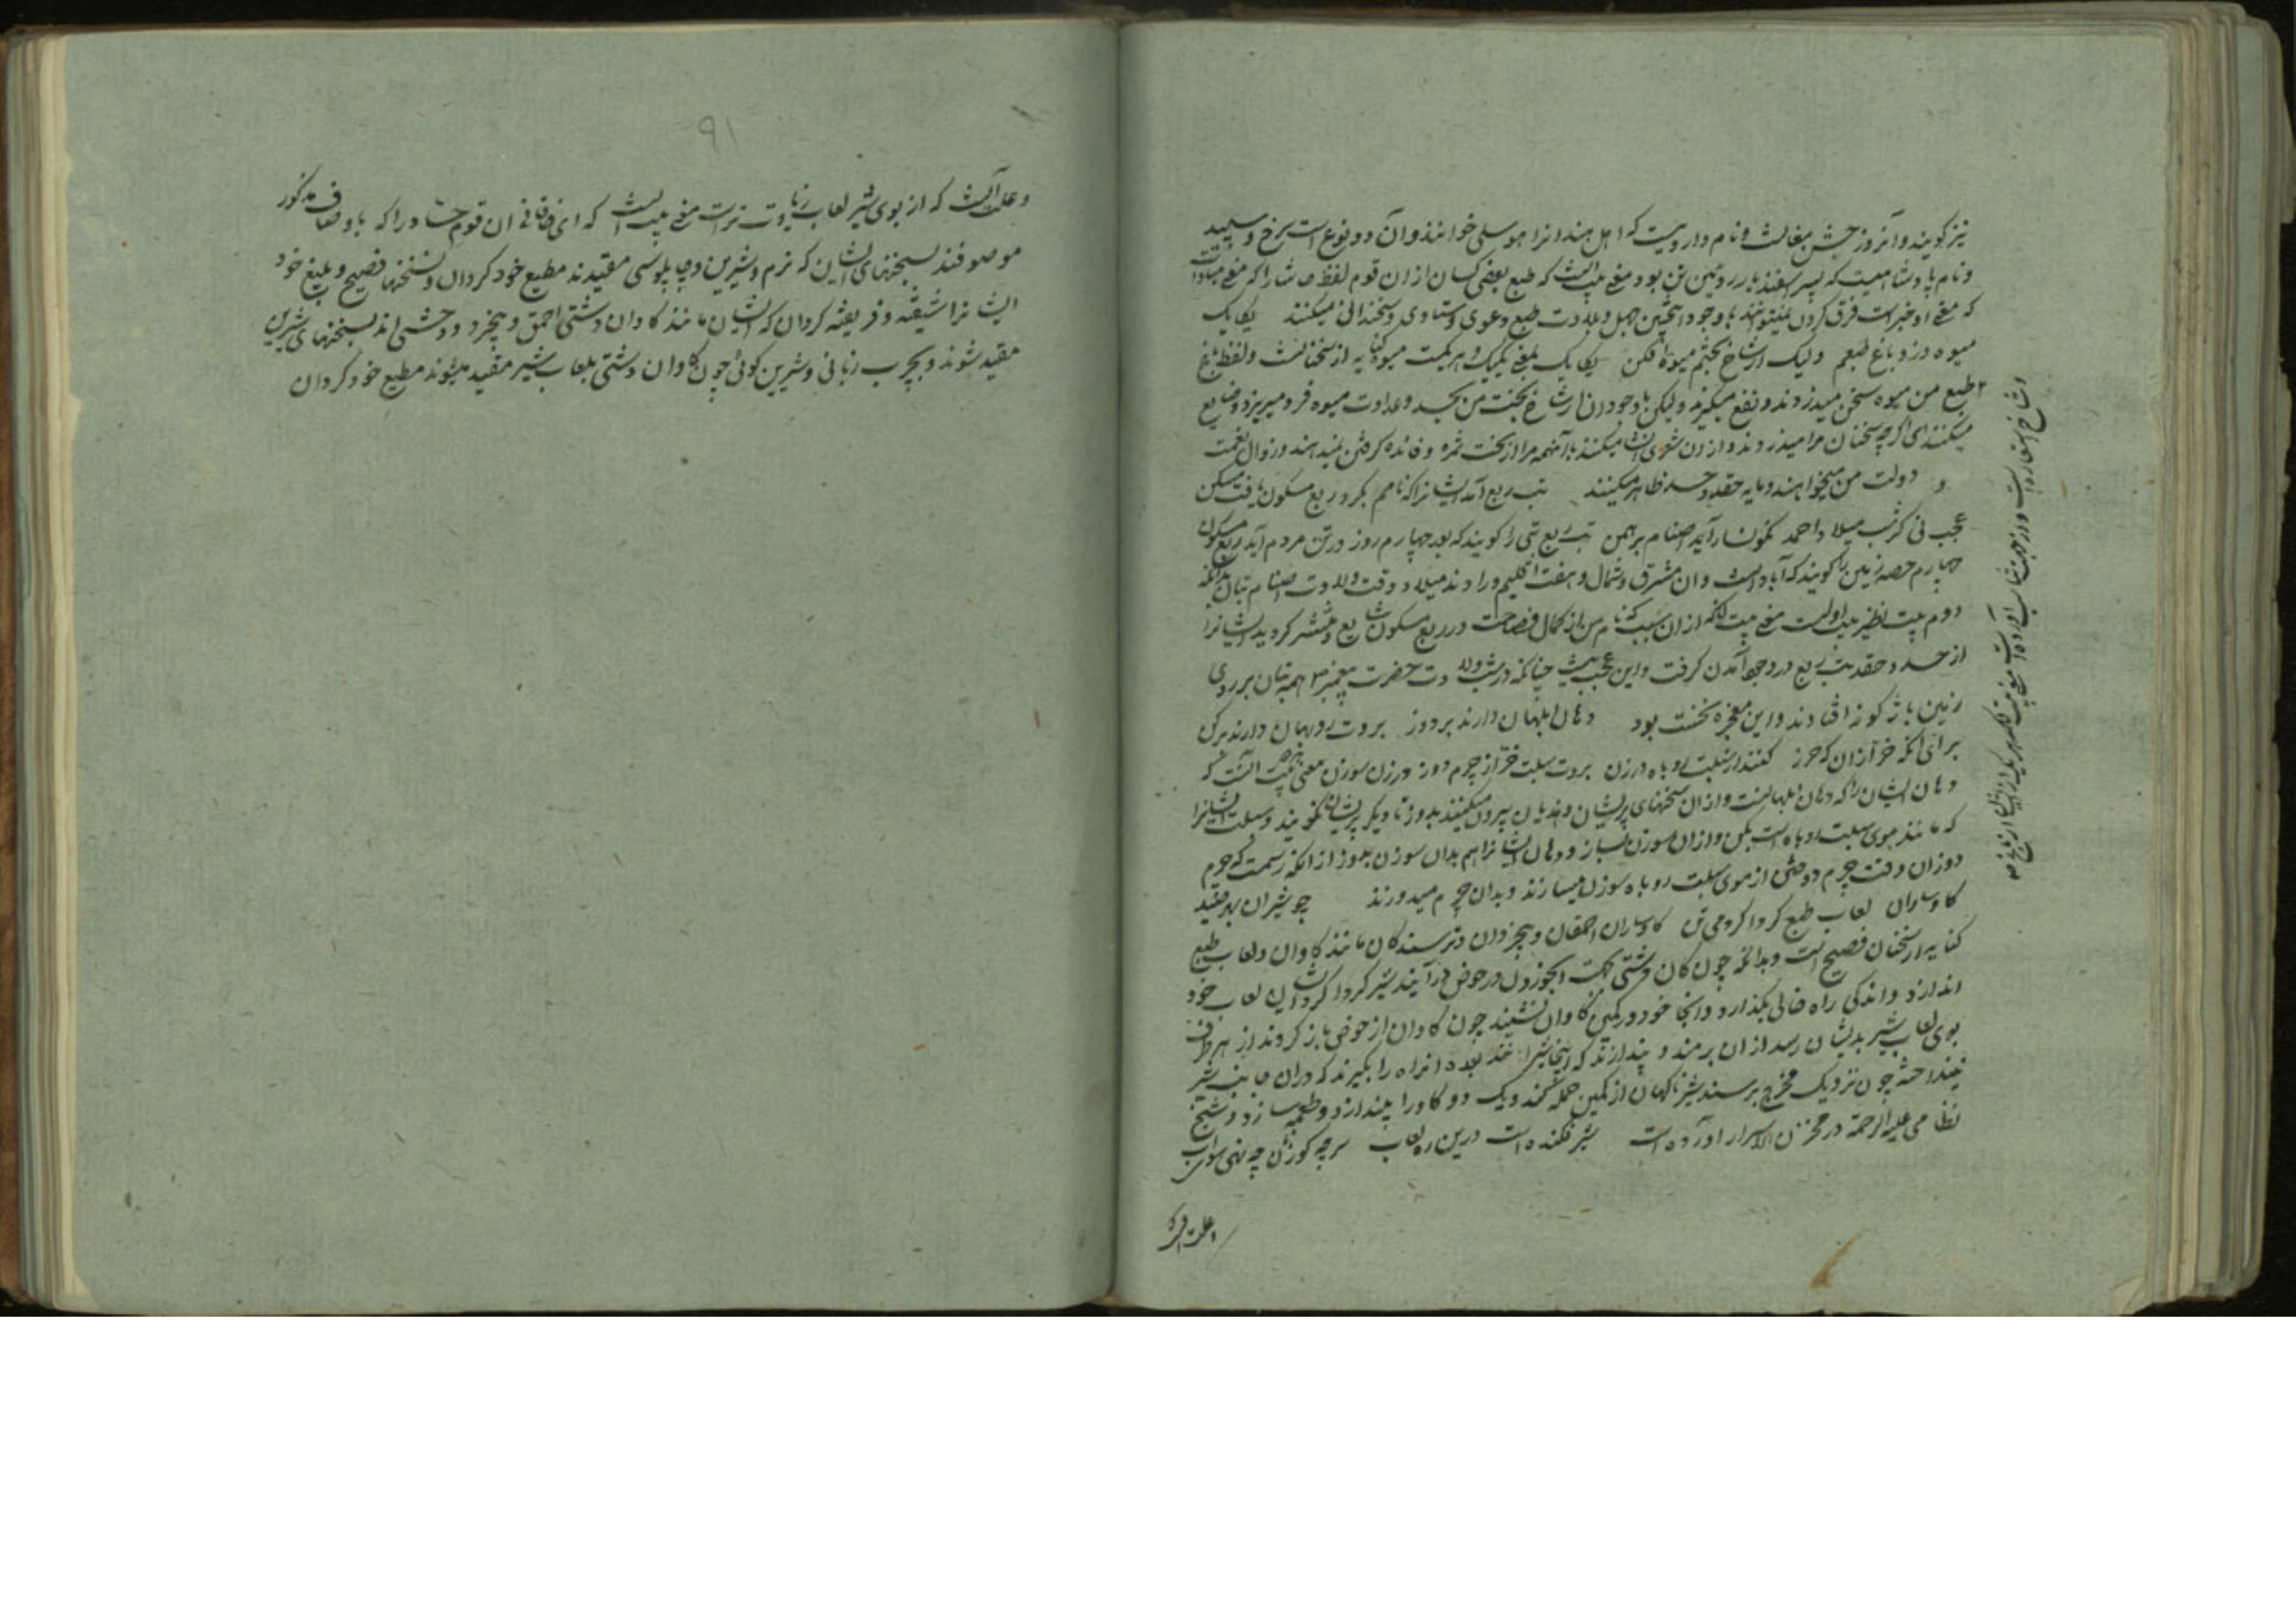 نیز کویند و آنروز جشن مغانست و نام داروییست که اهل هند انرا موسلی خوانند و آن دو نوع است سرخ و سپید
و نام پادشاهیست که پسر اسفندیار رویین تن بود معنی بیت انست که طبع بعضی کسان از ان قوم لفظ
که معنی او خیر است فرق کردن نمیتوانند با وجود اینچنین جهل و بلادت طبع دعوی و ستاوی و سخندانی میکنند یکایک
میوه دزد باغ طبعم ولیک از شاخ بختم میوه افکن یکایک بمعنی یک یک و هر یکست میوه کنایه از سخنانست و لفظ باغ
طبع من میوه سخن میدزدند و نفع میکیرند و لیکن با وجود ان از شاخ بخت من بحسد و عداوت میوه فرو میریزند و ضایع
میکنند ای اکرچه سخنان مرا میدزدند و از ان شعرای میکنند با آنهمه مرا از بخت ثمره و فائده کرفتن نمیدهند و زوال نعمت
و دولت من میخواهند و مایه حقد و حسد ظاهر میکنند تب ربع آمد ایشانرا که نامم بکرد ربع مسکون یافت مسکن
عجب نی کر شب میلاد احمد نکونسار آید اصنام برهمن تب ربع تبی را کویند که بعد چهارم روز در تن مردم آید ربع مسکون
چهارم حصه زمین را کویند که آبادانست و ان مشرق و شمال و هفت اقلیم و را دند میلاد وقت ولادت اصنام بتان بدانکه
دوم بیت نظیر بیت اولست معنی بیت انکه از ان سبب که نام من از کمال فصاحت در ربع مسکون شایع و منتشر کردید ایشانرا
از حسد و حقد تب ربع در وجود آمدن کرفت و این عجب نیست چنانکه در شب ولادت حضرت پیغمبر همه بتان بر روی
زمین باژکونه افتادند و این معجزه نخست بود دهان ابلهان دارند بردوز بروت روبهان دارند برکن
برای انکه خرازان که خرز کنند از سبلت روباه درزن بروت سبلت خراز چرم دوز درزن سوزن معنی بیت انست که
دهان ایشان را که دهان ابلهانست و از ان سخنهای پریشان و هذیان بیرون میکنند بدوز تا دیکر پریشان نکویند و سبلت ایشانرا
که مانند موی سبلت روباه است بکن و از ان سوزن بساز و دهان ایشانرا هم بدان سوزن بدوز از انکه رسمست که چرم
دوزان وقت چرم دوختن از موی سبلت روباه سوزن میسازند و بدان چرم میدوزند چو شیران بهر صید
کاوساران لعاب طبع کرداکرد می تن کاوساران احمقان و بیخردان و ترسندکان مانند کاوان و لعاب طبع
کنایه از سخنان فصیح است و بدانکه چون کاوان دشتی بجهت ابخوردن در حوض درآیند شیر کرداکرد ایشان لعاب خود
اندازد و اندکی راه خالی بکذارد و انجا خود در کمین کاوان نشیند چون کاوان از حوض باز کردند از هر طرف
بوی لعاب شیر بدیشان رسد از ان برمند و پندارند که اینجا شیر است بعده انراه را بکیرند که دران جانب شیر
نینداخته چون نزدیک مخرج برسند شیر ناکهان از کمین حمله کند و یک دو کاو را بیندازد و طعمه سازد و شیخ
نظامی علیه الرحمة در مخزن الاسرار اورده است شیر فکنده است درین ره لعاب سر چو کوزن چه نهی سوی اب
و علت انکه
وعلت آنست که از بوی شیر لعاب زیادت ترست معنی بیت انست که ای خاقانی ان قوم حساد را که باوصاف مذکور
موصوفند بسخنهای ایشان که نرم و شیرین و چاپلوسی مقیدند مطیع خود کردان و بسخنها فصیح و بلیغ خود
ایشانرا شیفته و فریفته کردان که ایشان مانند کاوان دشتی احمق و بیخرد و وحشی اند بسخنهای شیرین
مقید شوند و بچرب زبانی و شیرین کوئی چون کاوان دشتی بلعاب شیر مقید میشوند مطیع خود کردان